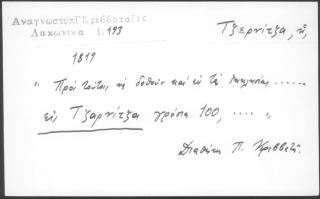 Ἀναγνωστοπ Κρεββαταῖος
Λακωνικα 1.193
Τζερνίτζα, ἡ,
1819
" Πρὸς τούτοις νὰ δοθοῦν καὶ εἰς τὰς ἐκκλησίας ......
εἰς Τζαρνίτζα γρόσια 100, .... "
Διαθήκη Π. Κρεββατᾶ.